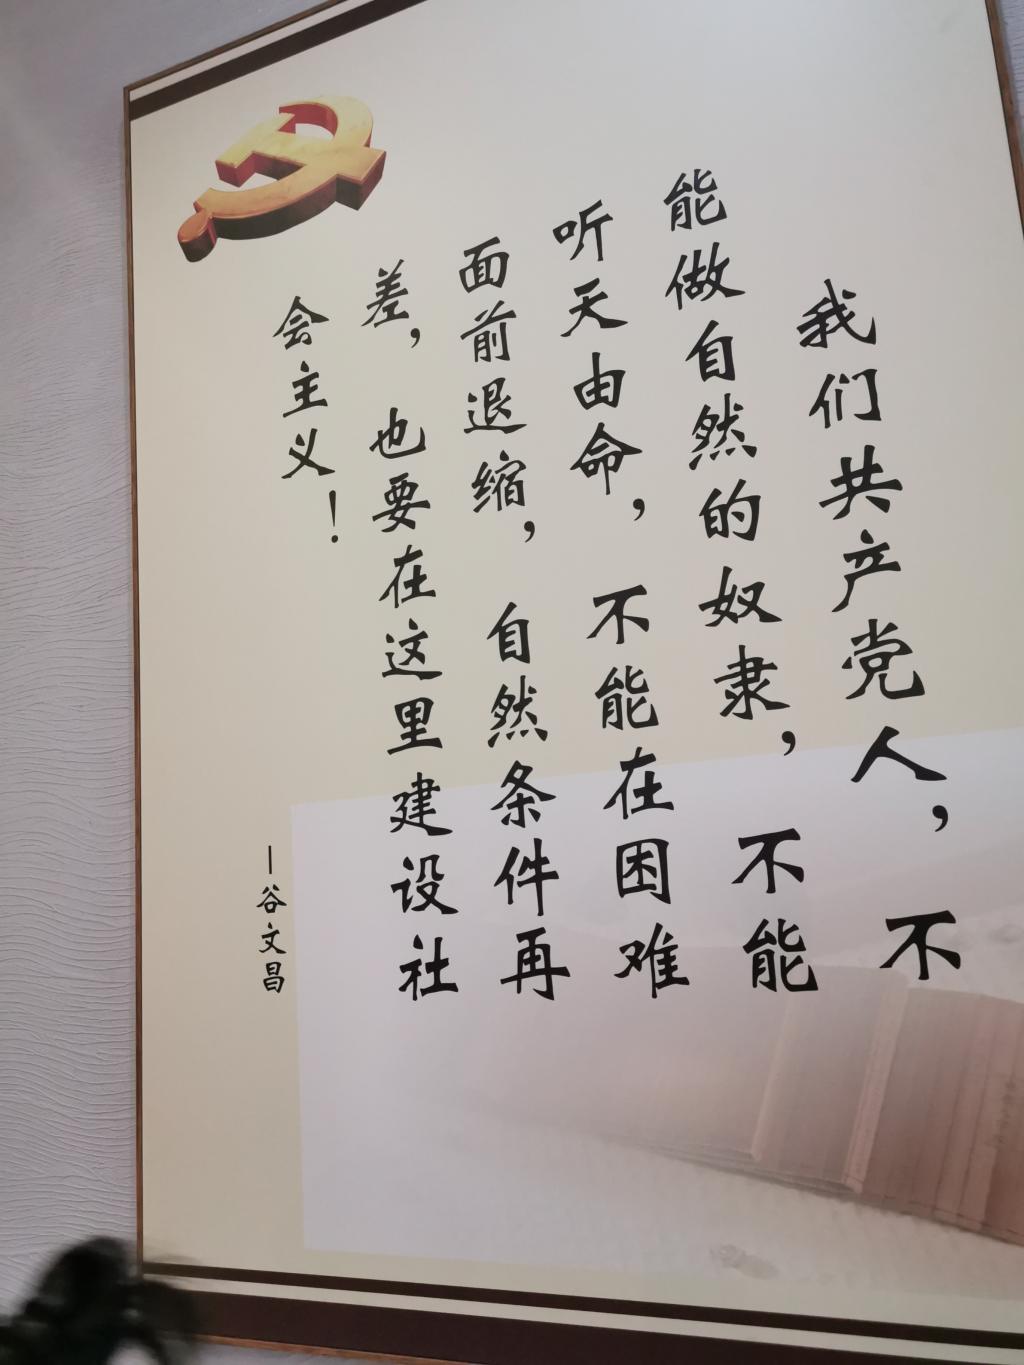 我们共产党人，不
能做自然的奴隶，不能
听天由命，不能在困难
面前退缩，自然条件再
差，也要在这里建设社
会主义！
—谷文昌